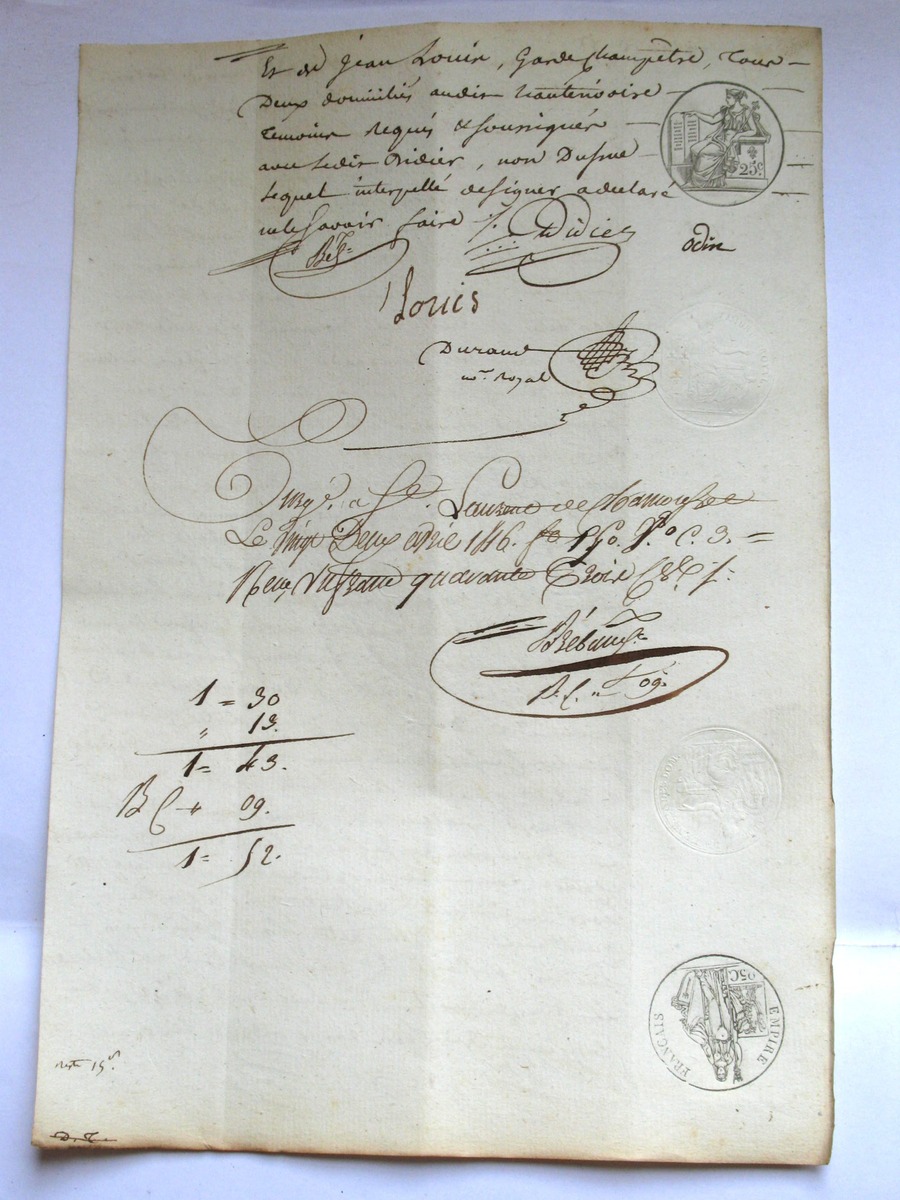 Et de jean Louis, Garde Champêtre, Tous
Deux domiciliés audit hautenvoire
Temoins Requis & soussignés
avec ledit Didier, non Dufme
Lequel interpellé designer a declaré
ne le Savoir faire
Didier
25c.
odin
Louis
Durand
nre. Royal
Enrgé. a St. Laurent de Chamousset
Le Vingt Deux avril 1816. fo 150. Vo. C. 3. =
Reçu un franc quarante Trois
09.
1 = 30
" 13.
1 = 43.
09.
1 = 52.
EMPIRE
FRANÇAIS
25C
reste 15s.